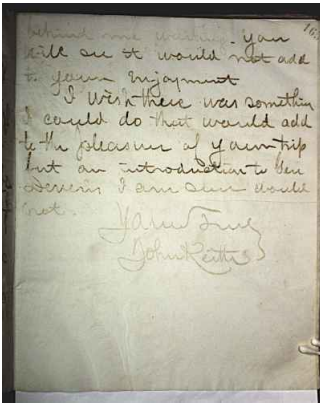 behind me waiting. you
will see it would not add
to your enjoyment
I wish there was something
I could do that would add
to the pleasure of your trip
but an introduction to Gen
Devens I am sure would
not.
Yours Truly
John